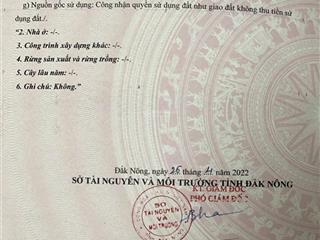 g) Nguồn gốc sử dụng: Công nhận quyền sử dụng đất như giao đất không thu tiền sử
dụng đất./.
"2. Nhà ở: -/-.
3. Công trình xây dựng khác: -/-.
4. Rừng sản xuất và rừng trồng: -/-.
5. Cây lâu năm: -/-.
6. Ghi chú: Không."
Đắk Nông, ngày 25 tháng 11 năm 2022
SỞ TÀI NGUYÊN VÀ MÔI TRƯỜNG TỈNH ĐẮK NÔNG
KT. GIÁM ĐỐC
PHÓ GIÁM ĐỐC
SỞ
TÀI NGUYÊN
VÀ
MÔI TRƯỜNG